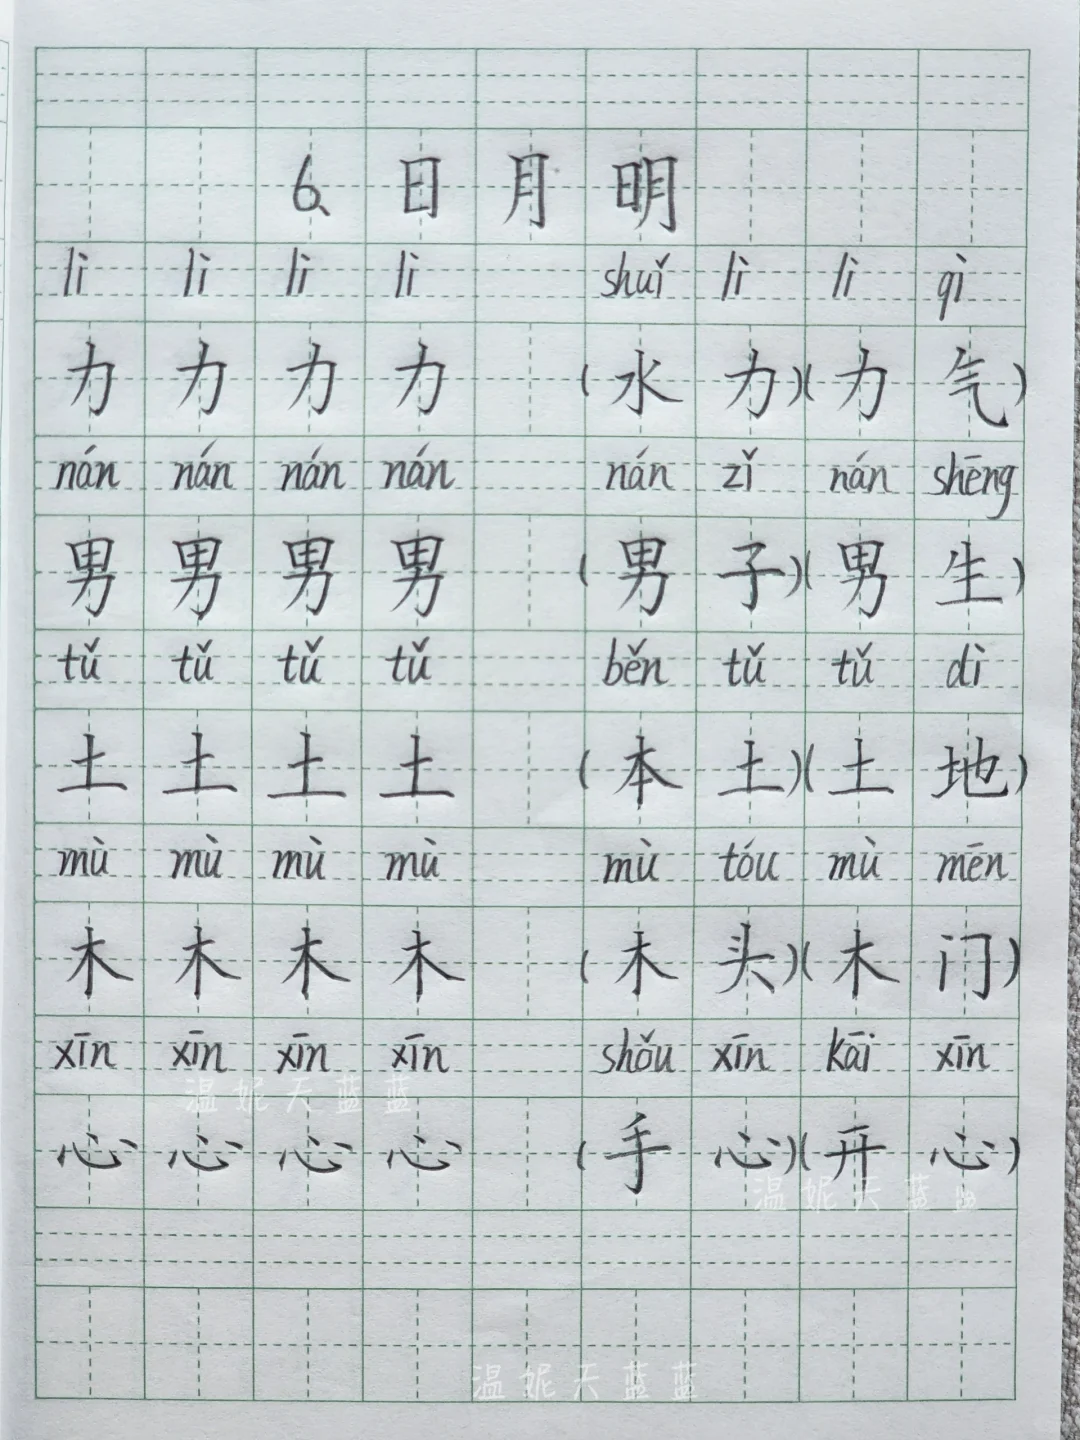 6、日月明
lì lì lì lì shuǐ lì lì qì
力 力 力 力 (水力)(力气)
nán nán nán nán nán zǐ nán shēng
男 男 男 男 (男子)(男生)
tǔ tǔ tǔ tǔ běn tǔ tǔ dì
土 土 土 土 (本土)(土地)
mù mù mù mù mù tóu mù mēn
木 木 木 木 (木头)(木门)
xīn xīn xīn xīn shǒu xīn kāi xīn
温妮天蓝蓝
心 心 心 心 (手心)(开心)
温妮天蓝蓝
温妮天蓝蓝